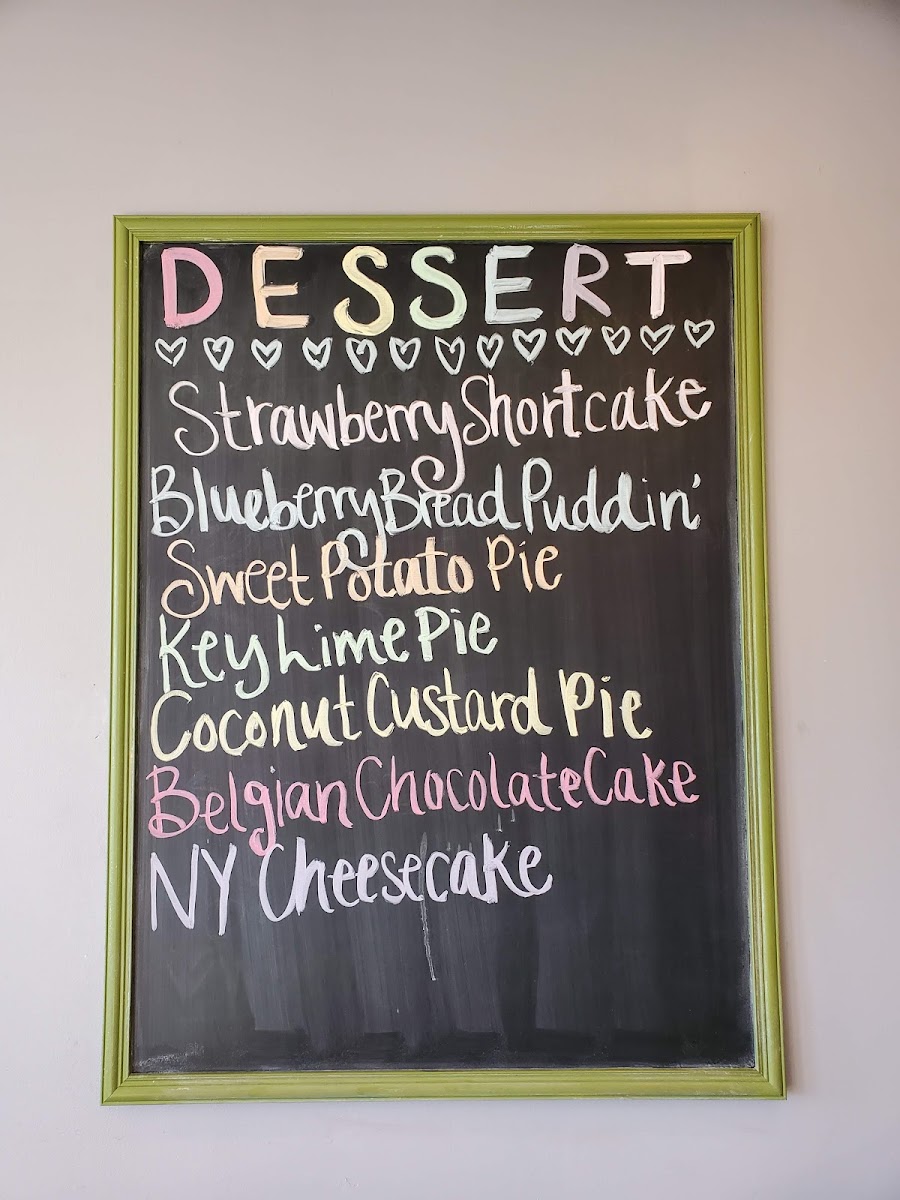 DESSERT
Strawberry Shortcake
Blueberry Bread Puddin'
Sweet Potato Pie
Key Lime Pie
Coconut Custard Pie
Belgian Chocolate Cake
NY Cheesecake